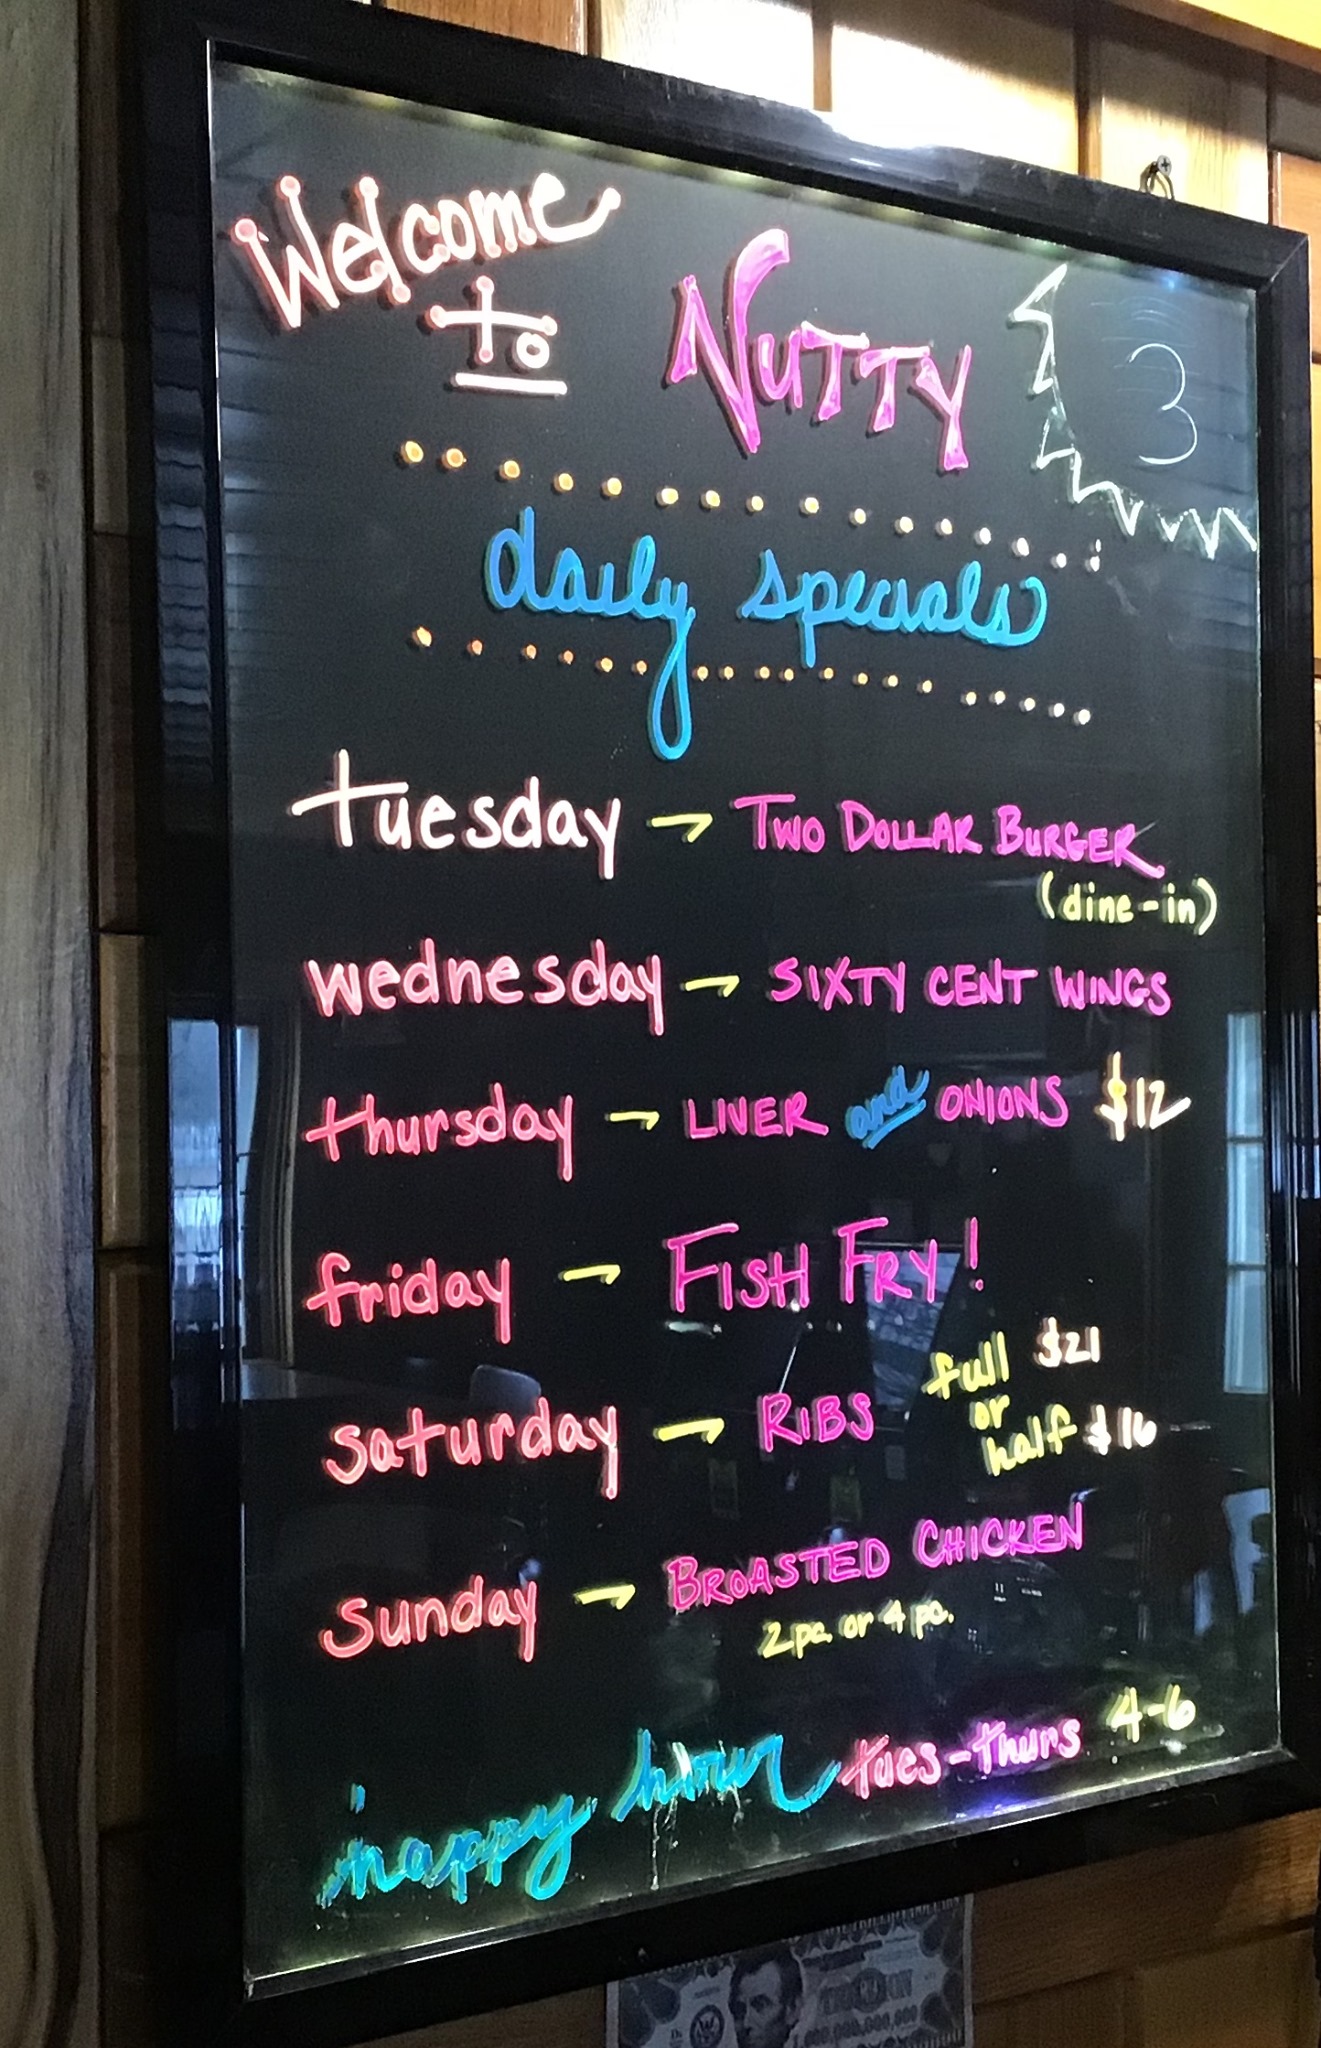 Welcome
to NUTTY
3
daily specials
tuesday → TWO DOLLAR BURGER
(dine-in)
wednesday → SIXTY CENT WINGS
thursday → LIVER and ONIONS $12
friday → FISH FRY!
saturday → RIBS full $21
or
half $16
sunday → BROASTED CHICKEN
2pc. or 4 pc.
happy hour tues-thurs 4-6